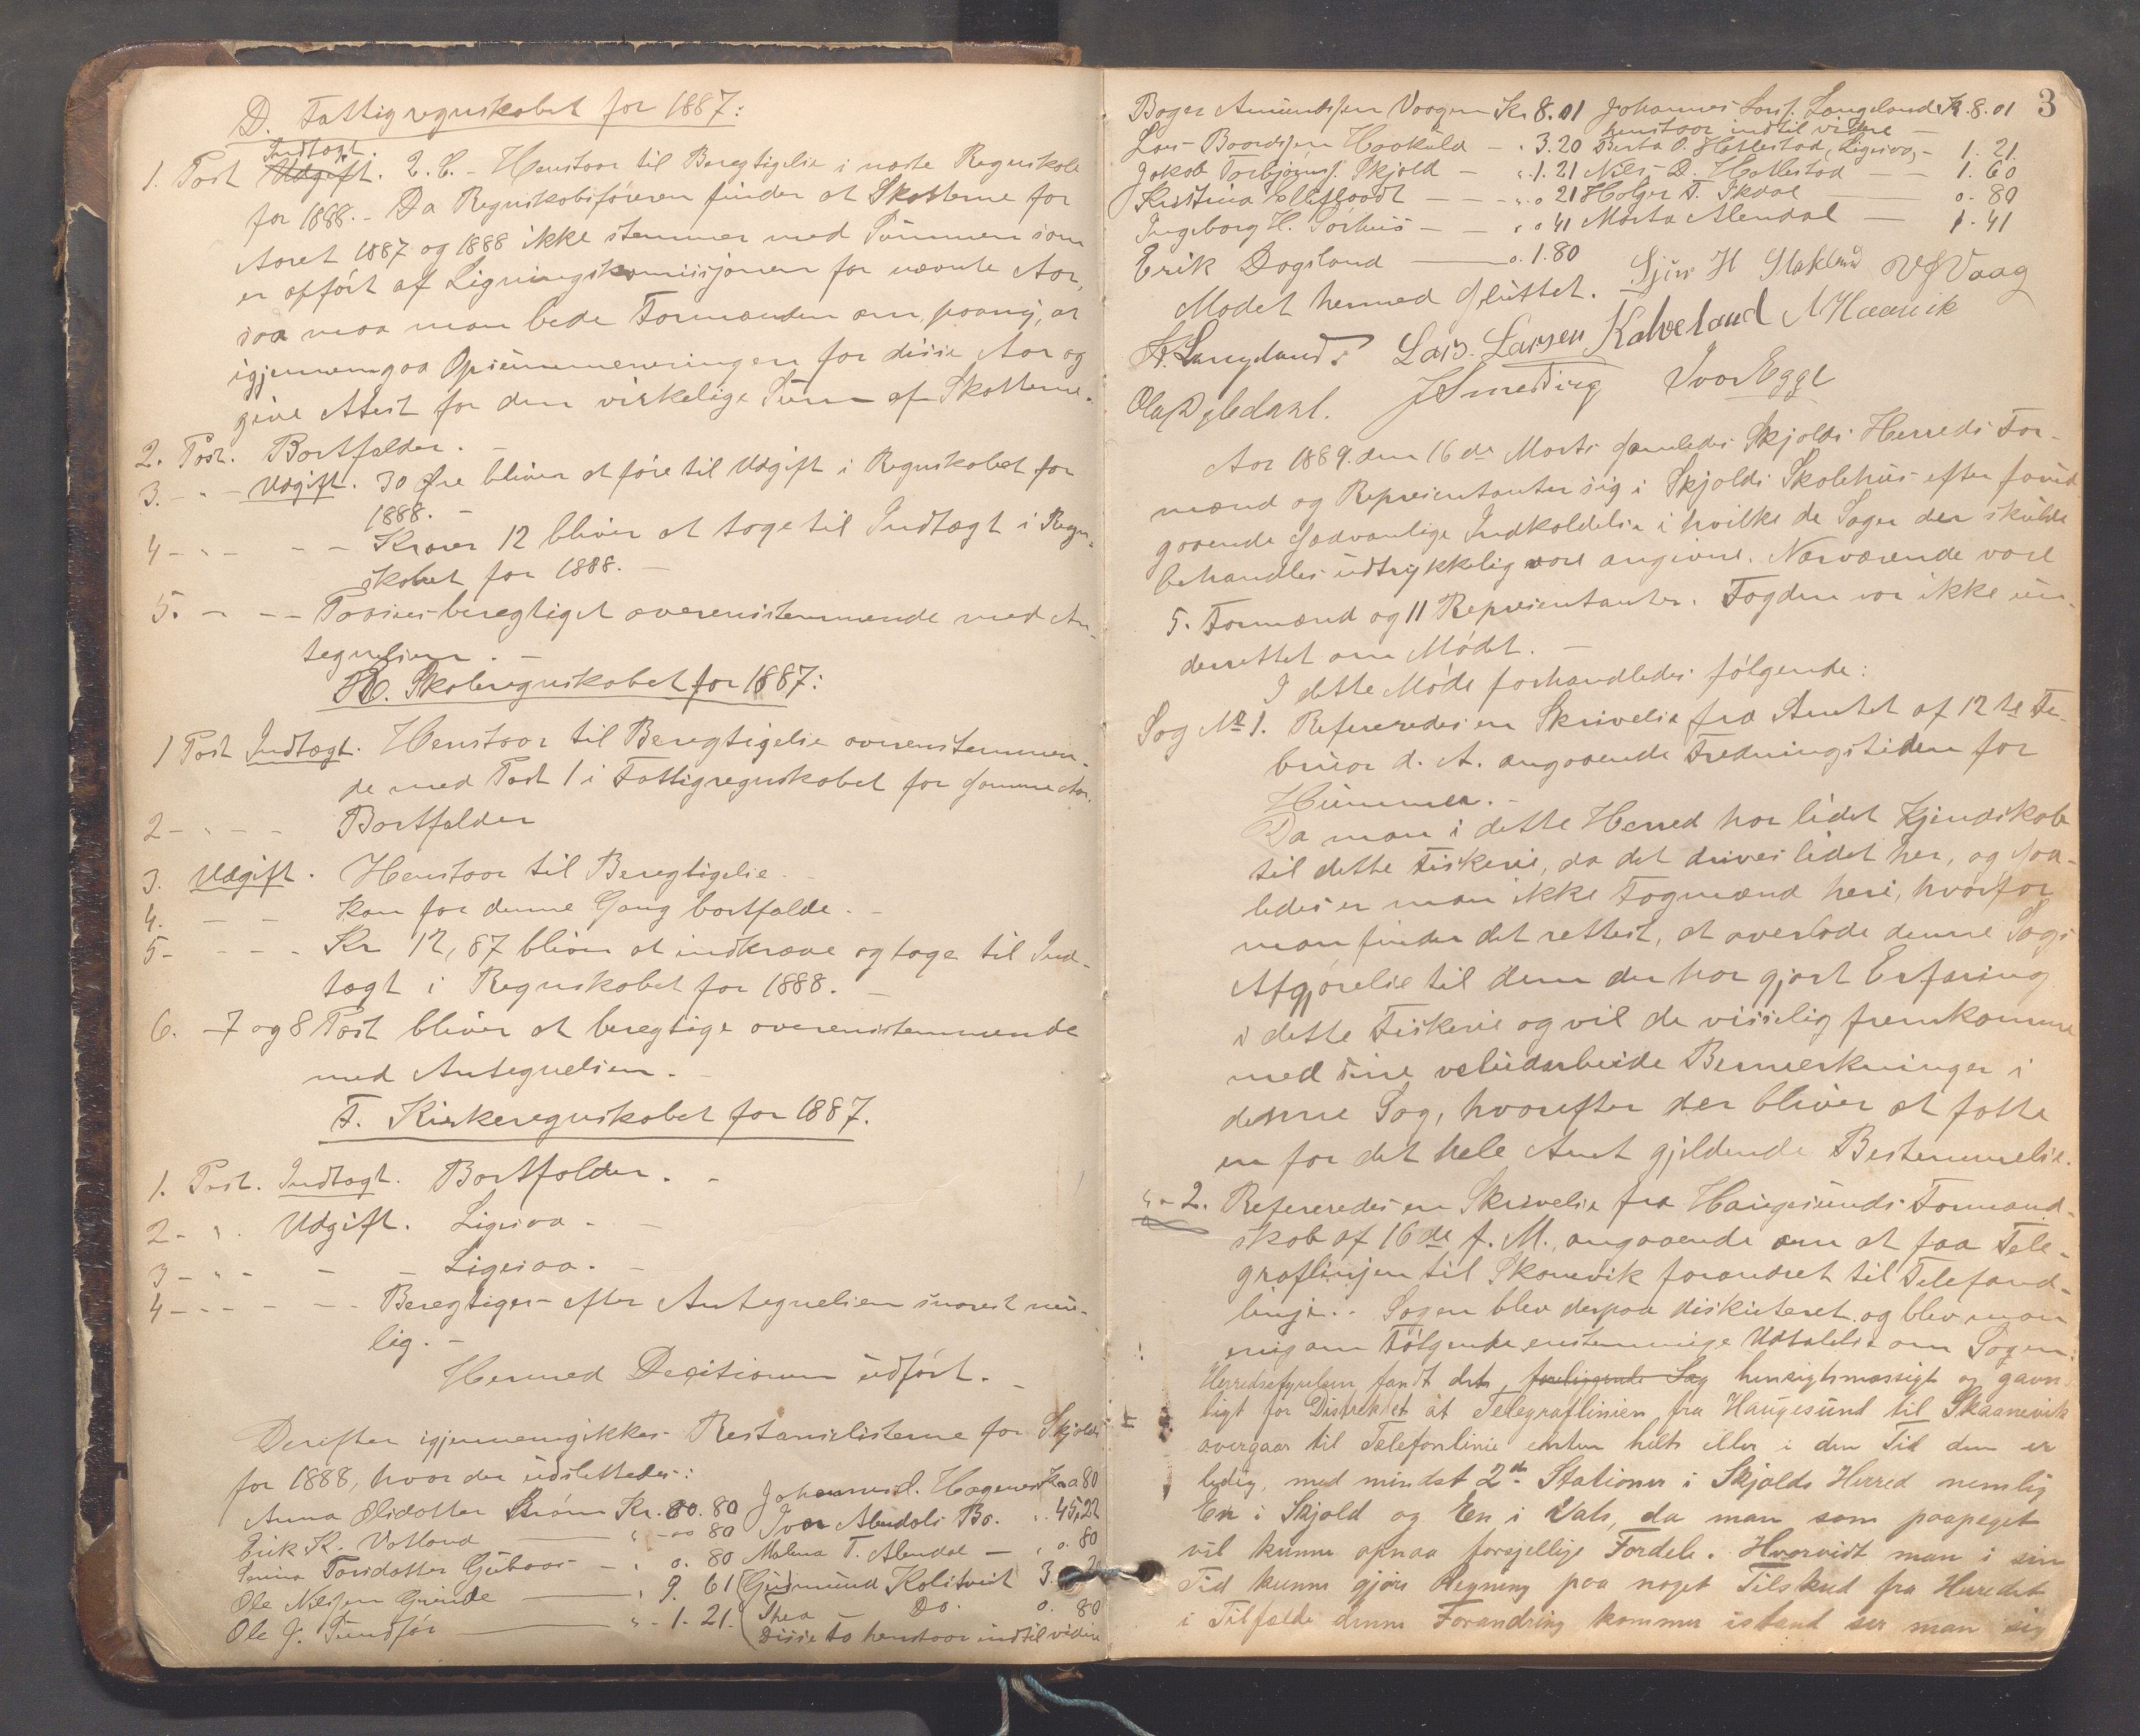 D. Fattigregnskabet for 1887:
Indtægt.
1. Post Udgift. 2. C. - Henstaar til Beregtigelse i næste Regnskab
for 1888. - Da Regnskabsføreren finder at Skatterne for
Aaret 1887 og 1888 ikke stemmer med Summen som
er opført af Ligningskomissjonen for nævnte Aar,
saa maa man bede Formanden om paany, at
igjennemgaa Opsummeneringen for disse Aar og
give Atest for den virkelige Sum af Skatterne.
2. Post. Bortfalder. -
3. - " - Udgift. 30 Øre bliver at føre til Udgift i Regnskabet for
1888. -
4 - " - - - Kroner 12 bliver at tage til Indtægt i Regn-
skabet for 1888. -
5. - - - - beregtiget overensstemmende med An-
tegnelsen. -
E. Skoleregnskabet for 1887:
1 Post Indtægt. Henstaar til Beregtigelse overenstemmen-
de med Post 1 i Fattigregnskabet for samme Aar.
2 - " - - Bortfalder
3. Udgift. Henstaar til Beregtigelse. -
4. - - Kan for denne Gang bortfalde. -
5 - - - - Kr 12,87 bliver at indkræve og tage til Ind-
tægt i Regnskabet for 1888. -
6. - 7 og 8 Post bliver at beregtige overensstemmende
med Antegnelsen. -
F. Kirkeregnskabet for 1887.
1. Post. Indtægt. Bortfalder. -
2 - ". Udgift. Ligesaa. -
3 - " - - - Ligesaa. -
4 - - - - - - Beregtiges efter Antegnelsen snarest mu-
lig. -
Hermed Decitionen udført. -
Derefter igjennemgikkes Restanselisterne for Skjold
for 1888, hvor der udslettedes:
Anna Olsdatter Strøm Kr. 0. 80 Johannes L. Hagenes Kr. 0 80
Erik K. Vatland " - 0 80 Ivar Alendals Bo. " 45,22
Torsdatter - " 0. 80 Malena T. Alendal - " 0. 80
Ole Nilssen Grinde " 9. 61 (Gudmund Kolstveit 3.
Ole J. Sundfør " - 1. 21. (Thea Do. 0. 80
Disse to henstaar indtil videre
3
Amundssen Vaagen Kr 8.01 Johannes Langeland Kr. 8.01
henstaar indtil videre -
Lars Baardssen Haakuld - " 3.20 Berta O. Hatlestad, Ligesaa, - 1. 21.
Jakob Torbjørns. Skjold - " 1.21 Nils D. Hatlestad - - 1. 60
Kristina - - - ". 0 21 Holger T. 0. 80
Ingeborg H. Børhus - - " 0 41 Marta Alendal - 1. 41
Erik Dagsland 0. 1.80
Mødet hermed sluttet. Sjur H Stakland V Vaag
Langeland. Lars. Larsen Kalveland N Haavik
Ola J Smedsvig Ivar Egge
Aar 1889. den 16 de Marts samledes Skjolds Herreds For-
mænd og Repræsentanter sig i Skjolds Skolehus efter forud-
gaaende sædvanlige Indkaldelse i hvilke de Sager der skulde
behandles udtrykkelig vare angivne. Nærværende vare
5. Formænd og 11 Repræsentanter. Fogden var ikke un-
derrettet om Mødet. -
I dette Møde forhandledes følgende:
Sag No 1. Refereredes en Skrivelse fra Amtet af 12 te Fe-
bruar d. A. angaaende Fredningstiden for
Hummer. -
Da man i dette Herred har lidet Kjendskab
til dette Fiskerie, da det drives lidet her, og saa-
ledes er man ikke Fagmænd heri, hvorfor
man finder det rettest, at overlade denne Sags
Afgjørelse til dem der har gjort Erfaring
i dette Fiskerie og vil de visselig fremkomme
med sine veludarbeide Bemærkninger i
denne Sag, hvorefter der bliver at fatte
en for det hele Amt gjeldende Bestemmelse.
" - 2. Refereredes en Skrivelse fra Haugesunds Formand-
skab af 16 de f. M., angaaende om at faa Tele-
graflinjen til Skonevik forandret til Telefond-
linje. - Sagen blev derpaa diskuteret og blev man
enig om Følgende enstemmige Udtalelse om Sagen:
Herredsstyrelsen fandt det foreliggende Sag hensigtsmæssigt og gavn-
ligt for Distriktet at Telegraflinien fra Haugesund til Skaanevik
overgaar til Telefonlinie enten helt eller i den Tid den er
ledig, med mindst 2de Stationer i Skjolds Herred nemlig
En i Skjold og En i Vats, da man som paapeget
vil kunne opnaa forsjellige Fordele. Hvorvidt man i sin
Tid kunne gjøre Regning paa noget Tilskud fra Herredet
i Tilfælde denne Forandring kommer istand ser man sig